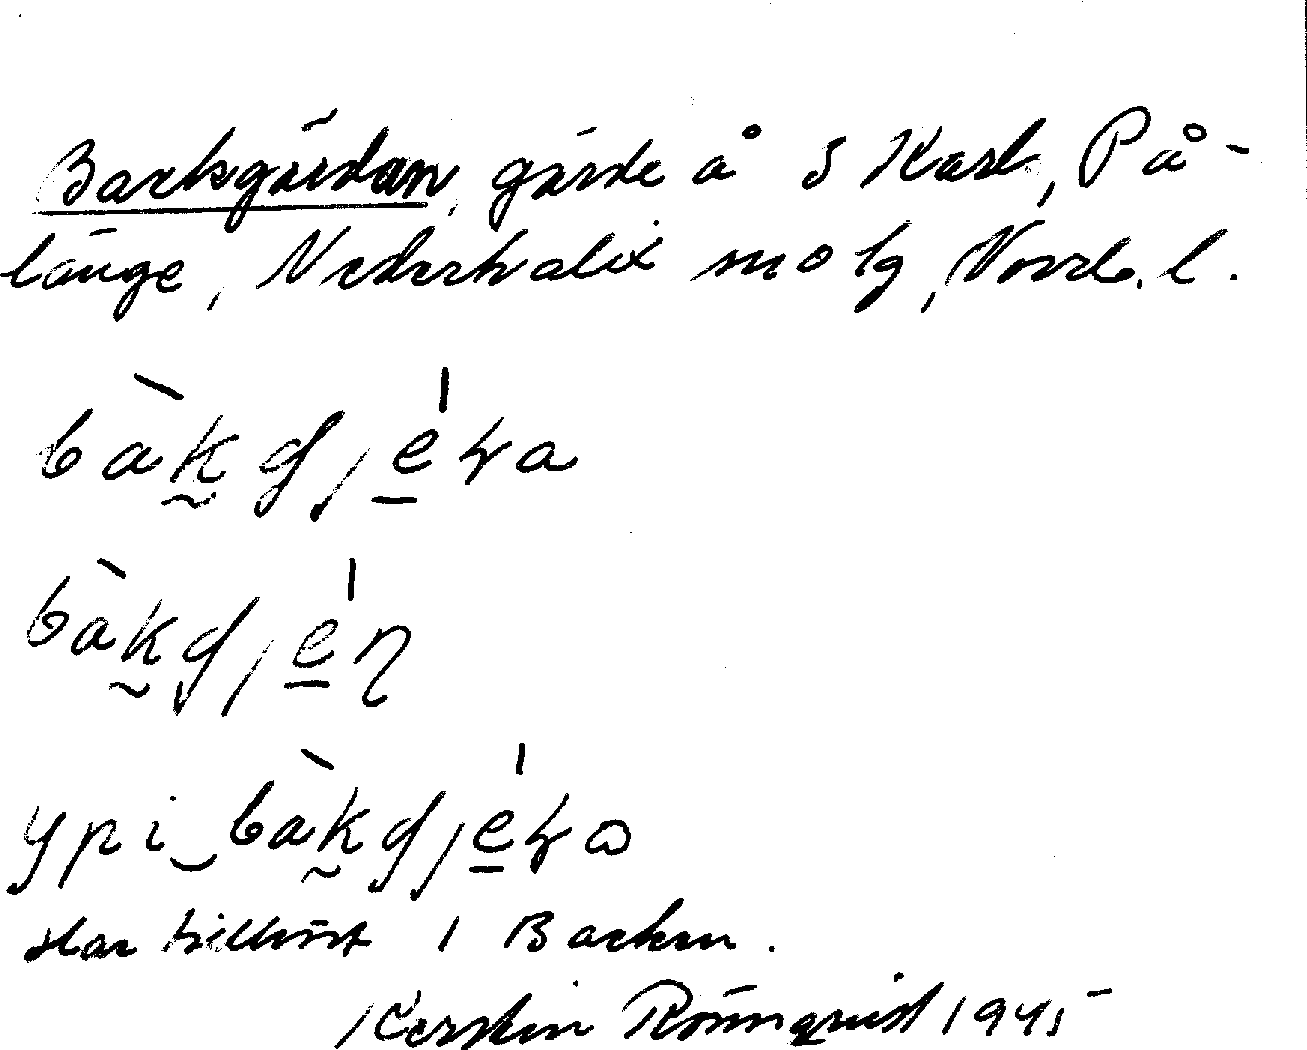 Backgärdan, gärde å 5 Karl, På-
länge, Nederkalix sn o tg, Norrb. l.
bàk̰gje̲ra
bàk̰gje̲n
ypi‿bàk̰gje̲ra
Har tillhört 1 Backen.
Kerstin Rönnquist 1945